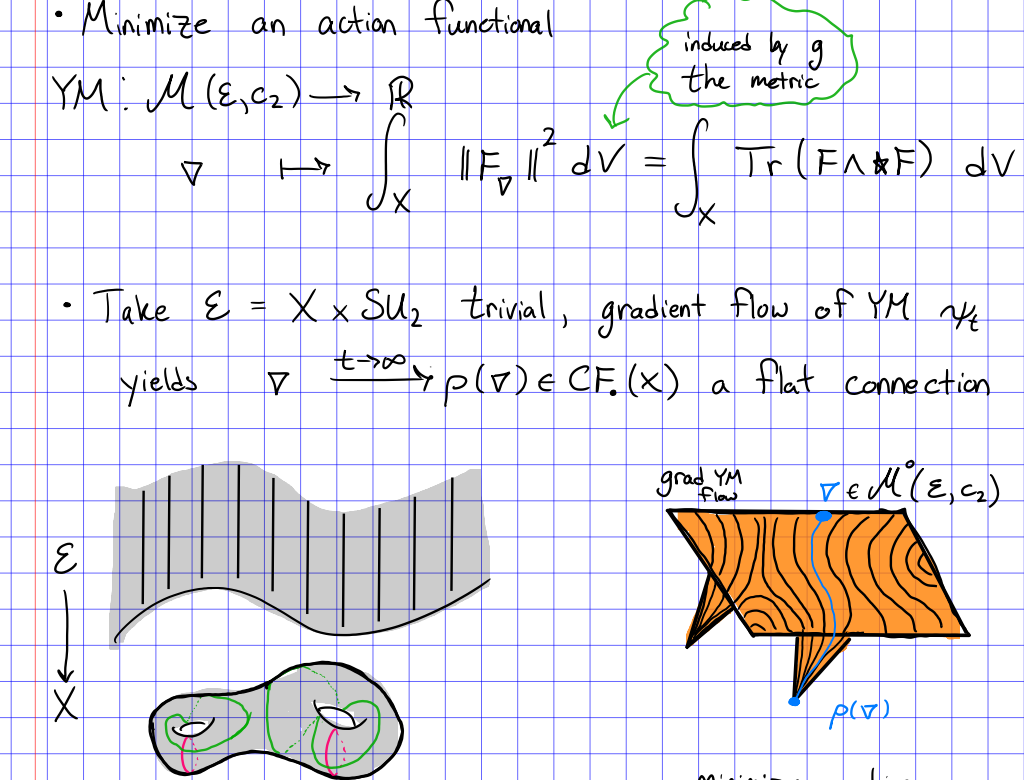 • Minimize an action functional
induced by g
the metric
YM : M(ℰ, c₂) ⟶ ℝ
∇ ⟼ ∫_X ‖F_∇‖² dV = ∫_X Tr(F∧★F) dV
• Take ℰ = X × SU₂ trivial, gradient flow of YM ψ_t
yields ∇ —t→∞→ ρ(∇) ∈ CF.(X) a flat connection
grad YM
flow
∇ ∈ M°(ℰ, c₂)
ℰ
X
ρ(∇)